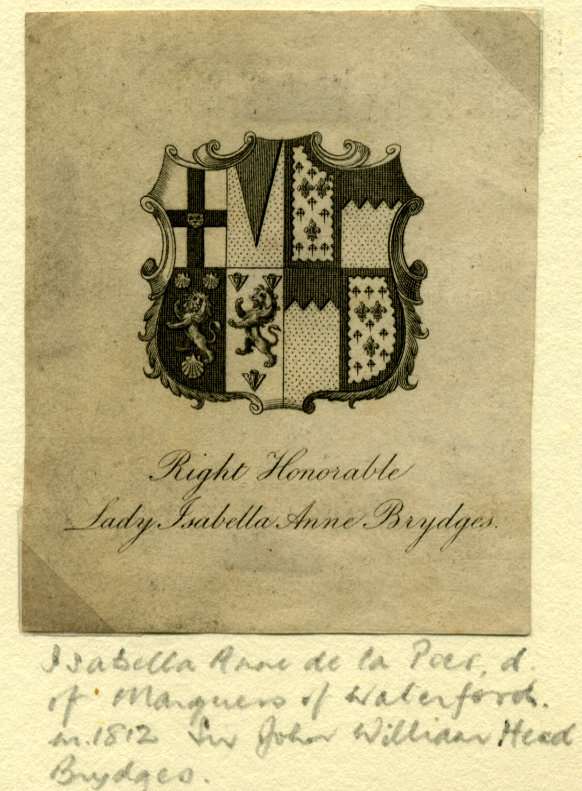 Right Honorable
Lady Isabella Anne Brydges.
Isabella Anne de la Poer, d.
of Marquess of Waterford.
m. 1812 Sir John William Head
Brydges.